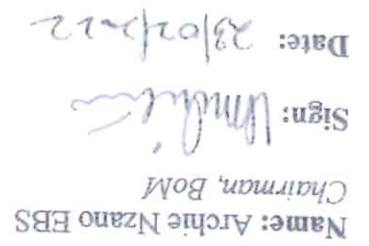 Name: Archie Nzano EBS
Chairman, BoM
Sign:
Date: 23/02/2022